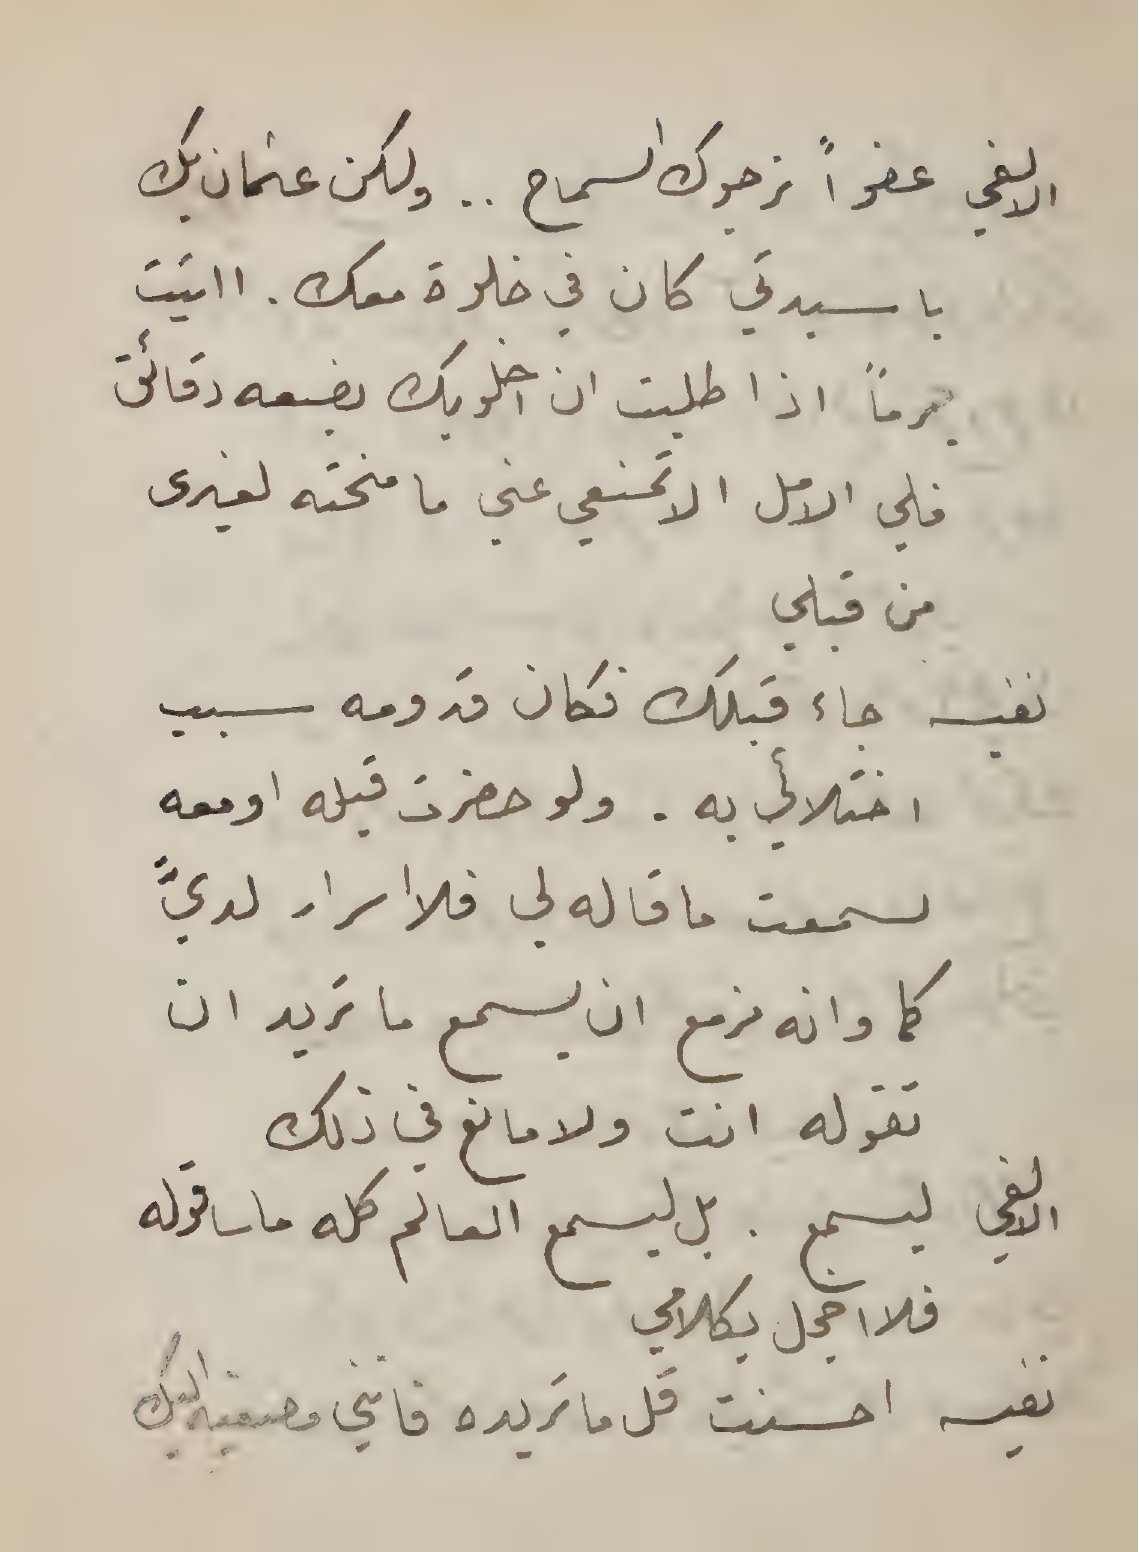 الالفي عفواً نرجوك السماح .. ولكن عثمان بك
ياسيدتي كان في خلوة معك . ااتيت
جرماً اذا طلبت ان اخلو بك بضعه دقائق
فلي الامل الا تمنعي عني ما منحته لغيرى
من قبلي
نفيسه جاء قبلك فكان قدومه سبب
اختلائي به . ولو حضرت قبله او معه
لسمعت ما قاله لي فلا اسرار لديَّ
كما وانه مزمع ان يسمع ما تريد ان
تقوله انت ولا مانع في ذلك
الالفي ليسمع . بل ليسمع العالم كله ما ساقوله
فلا اخجل بكلامي
نفيسه احسنت قل ما تريده فانني مصغيه اليك